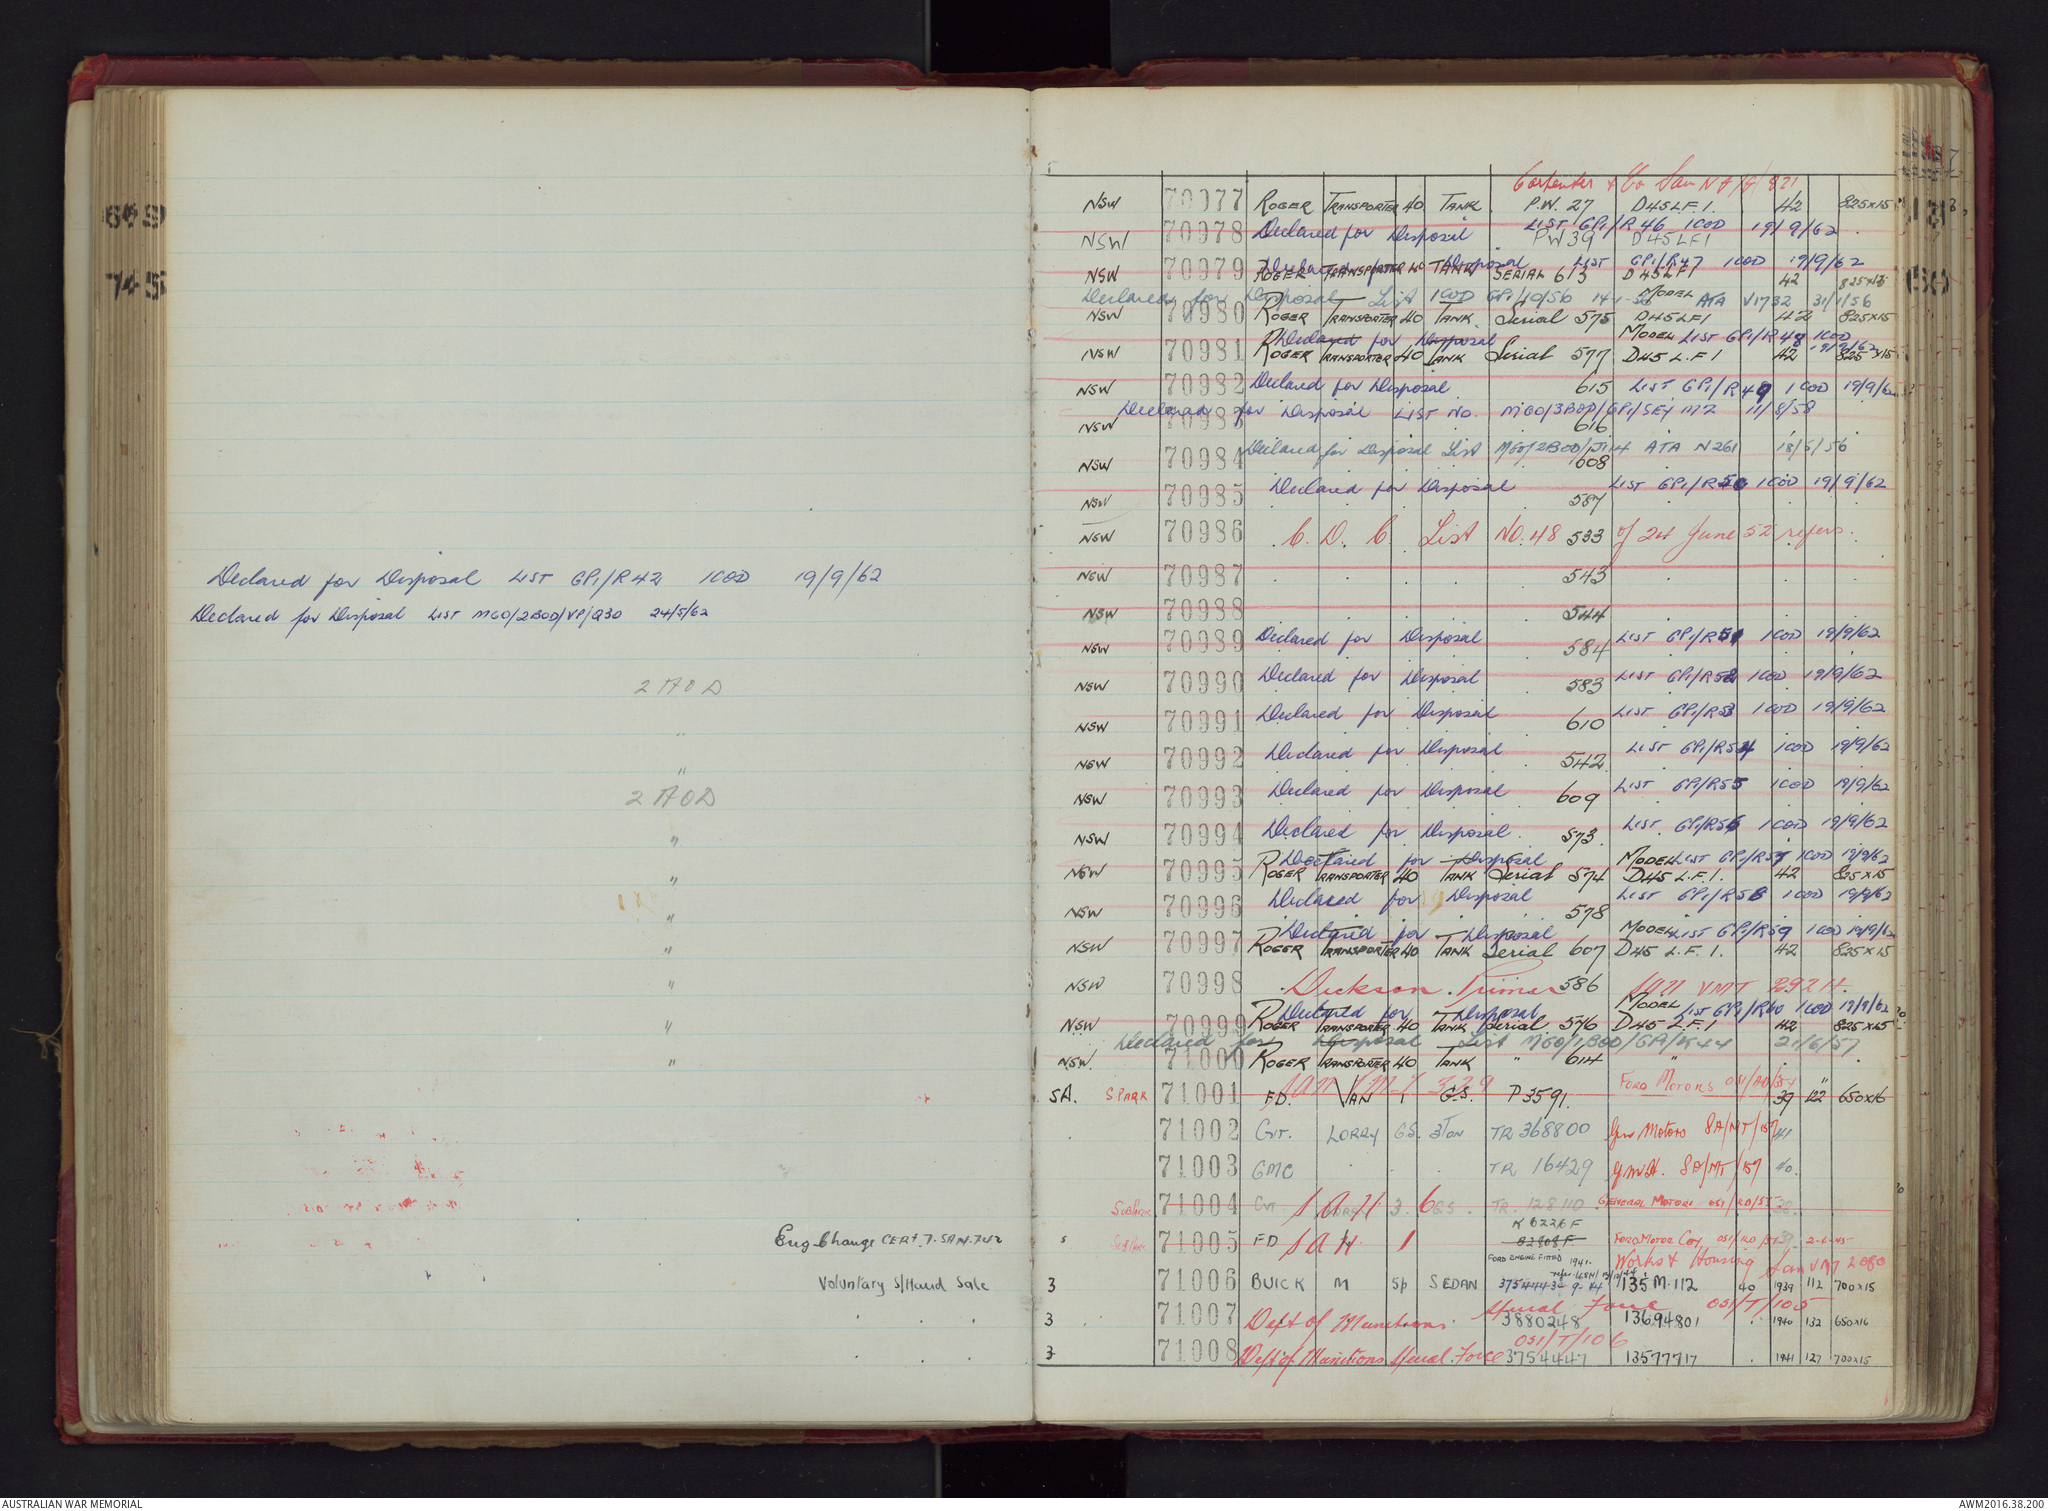 669
745
Declared for Disposal LIST GP1/R42 1COD 19/9/62
Declared for Disposal LIST MGO/2BOD/VP/Q30 24/5/62
2 AOD
"
"
2 AOD
"
"
"
"
"
"
"
Eng. Change CERT. 7. SAM. 742
Voluntary S/Hand Sale
Carpenter & Co
NSW 70977 ROGER TRANSPORTER 40 TANK P.W. 27 D45LF1. 42 825x15
NSW 70978 Declared for Disposal LIST GP1/R46 1COD 19/9/62
PW39 D45LF1
Declared for Disposal LIST GP1/R47 1COD 19/9/62
NSW 70979 ROGER TRANSPORTER 40 TANK SERIAL 613 D45LF1 42 825x15
Declared for Disposal List 1COD GP1/10/56 ATA V1732 31/1/56
NSW 70980 ROGER TRANSPORTER 40 TANK. Serial 575 MODEL D45LF1 42 825x15
Declared for Disposal MODEL LIST GP1/R48 1COD 19/9/62
NSW 70981 ROGER TRANSPORTER 40 TANK Serial 577 D45 L.F.1 42 825x15
NSW 70982 Declared for Disposal 615 LIST GP1/R49 1COD 19/9/62
Declared for Disposal LIST No. MGO/3BOD/GP1/SEY M2 11/8/58
NSW 70983 616
Declared for Disposal List ATA N261 18/6/56
NSW 70984 608
Declared for Disposal LIST GP1/R50 1COD 19/9/62
NSW 70985 587
NSW 70986 C. D. C. List NO. 48 533 of 24 June 52 refers.
NSW 70987 543
NSW 70988 544
NSW 70989 Declared for Disposal 584 LIST GP1/R51 1COD 19/9/62
NSW 70990 Declared for Disposal 583 LIST GP1/R52 1COD 19/9/62
NSW 70991 Declared for Disposal 610 LIST GP1/R53 1COD 19/9/62
NSW 70992 Declared for Disposal 542 LIST GP1/R54 1COD 19/9/62
NSW 70993 Declared for Disposal 609 LIST GP1/R55 1COD 19/9/62
NSW 70994 Declared for Disposal 573 LIST GP1/R56 1COD 19/9/62
Declared for Disposal MODEL LIST GP1/R57 1COD 19/9/62
NSW 70995 ROGER TRANSPORTER 40 TANK Serial 574 D45 L.F.1. 42 825x15
NSW 70996 Declared for Disposal 578 LIST GP1/R58 1COD 19/9/62
Declared for Disposal MODEL LIST GP1/R59 1COD 19/9/62
NSW 70997 ROGER TRANSPORTER 40 TANK Serial 607 D45 L.F.1. 42 825x15
NSW 70998 Dickson Primer 586 VMT 2924
Declared for Disposal MODEL LIST GP1/R60 1COD 19/9/62
NSW 70999 ROGER TRANSPORTER 40 TANK Serial 576 D45 L.F.1 42 825x15
Declared for Disposal List MGO/1BOD/GP1/K44 21/6/57
NSW. 71000 ROGER TRANSPORTER 40 TANK " 614 "
SA. SPARK 71001 FD. VAN G.S. P3591. FORD MOTORS 39 122" 650x16
71002 CVT. LORRY G.S. 3 TON TR 368800 Gen Motors SA/MT/157 41
71003 GMC TR 16429 G.M.H. SA/MT/157 40.
71004 CVT S A H 3 GS. TR. 128110 GENERAL MOTORS 38.
K8226F
71005 FD S A H 1 82808F FORD MOTOR Coy. 39. 2-6-45
FORD ENGINE FITTED 1941. Works & Housing Sam VMT 2080
3 71006 BUICK M 5p SEDAN 3754443 135.M.112 40 1939 112 700x15
3 71007 Dept of Munitions. Aerial Force OSI/T/105 3880248 13694801 1940 132 650x16
OSI/T/106
3 71008 Dept of Munitions Aerial Force 3754447 13577717 1941 127 700x15
AUSTRALIAN WAR MEMORIAL
AWM2016.38.200